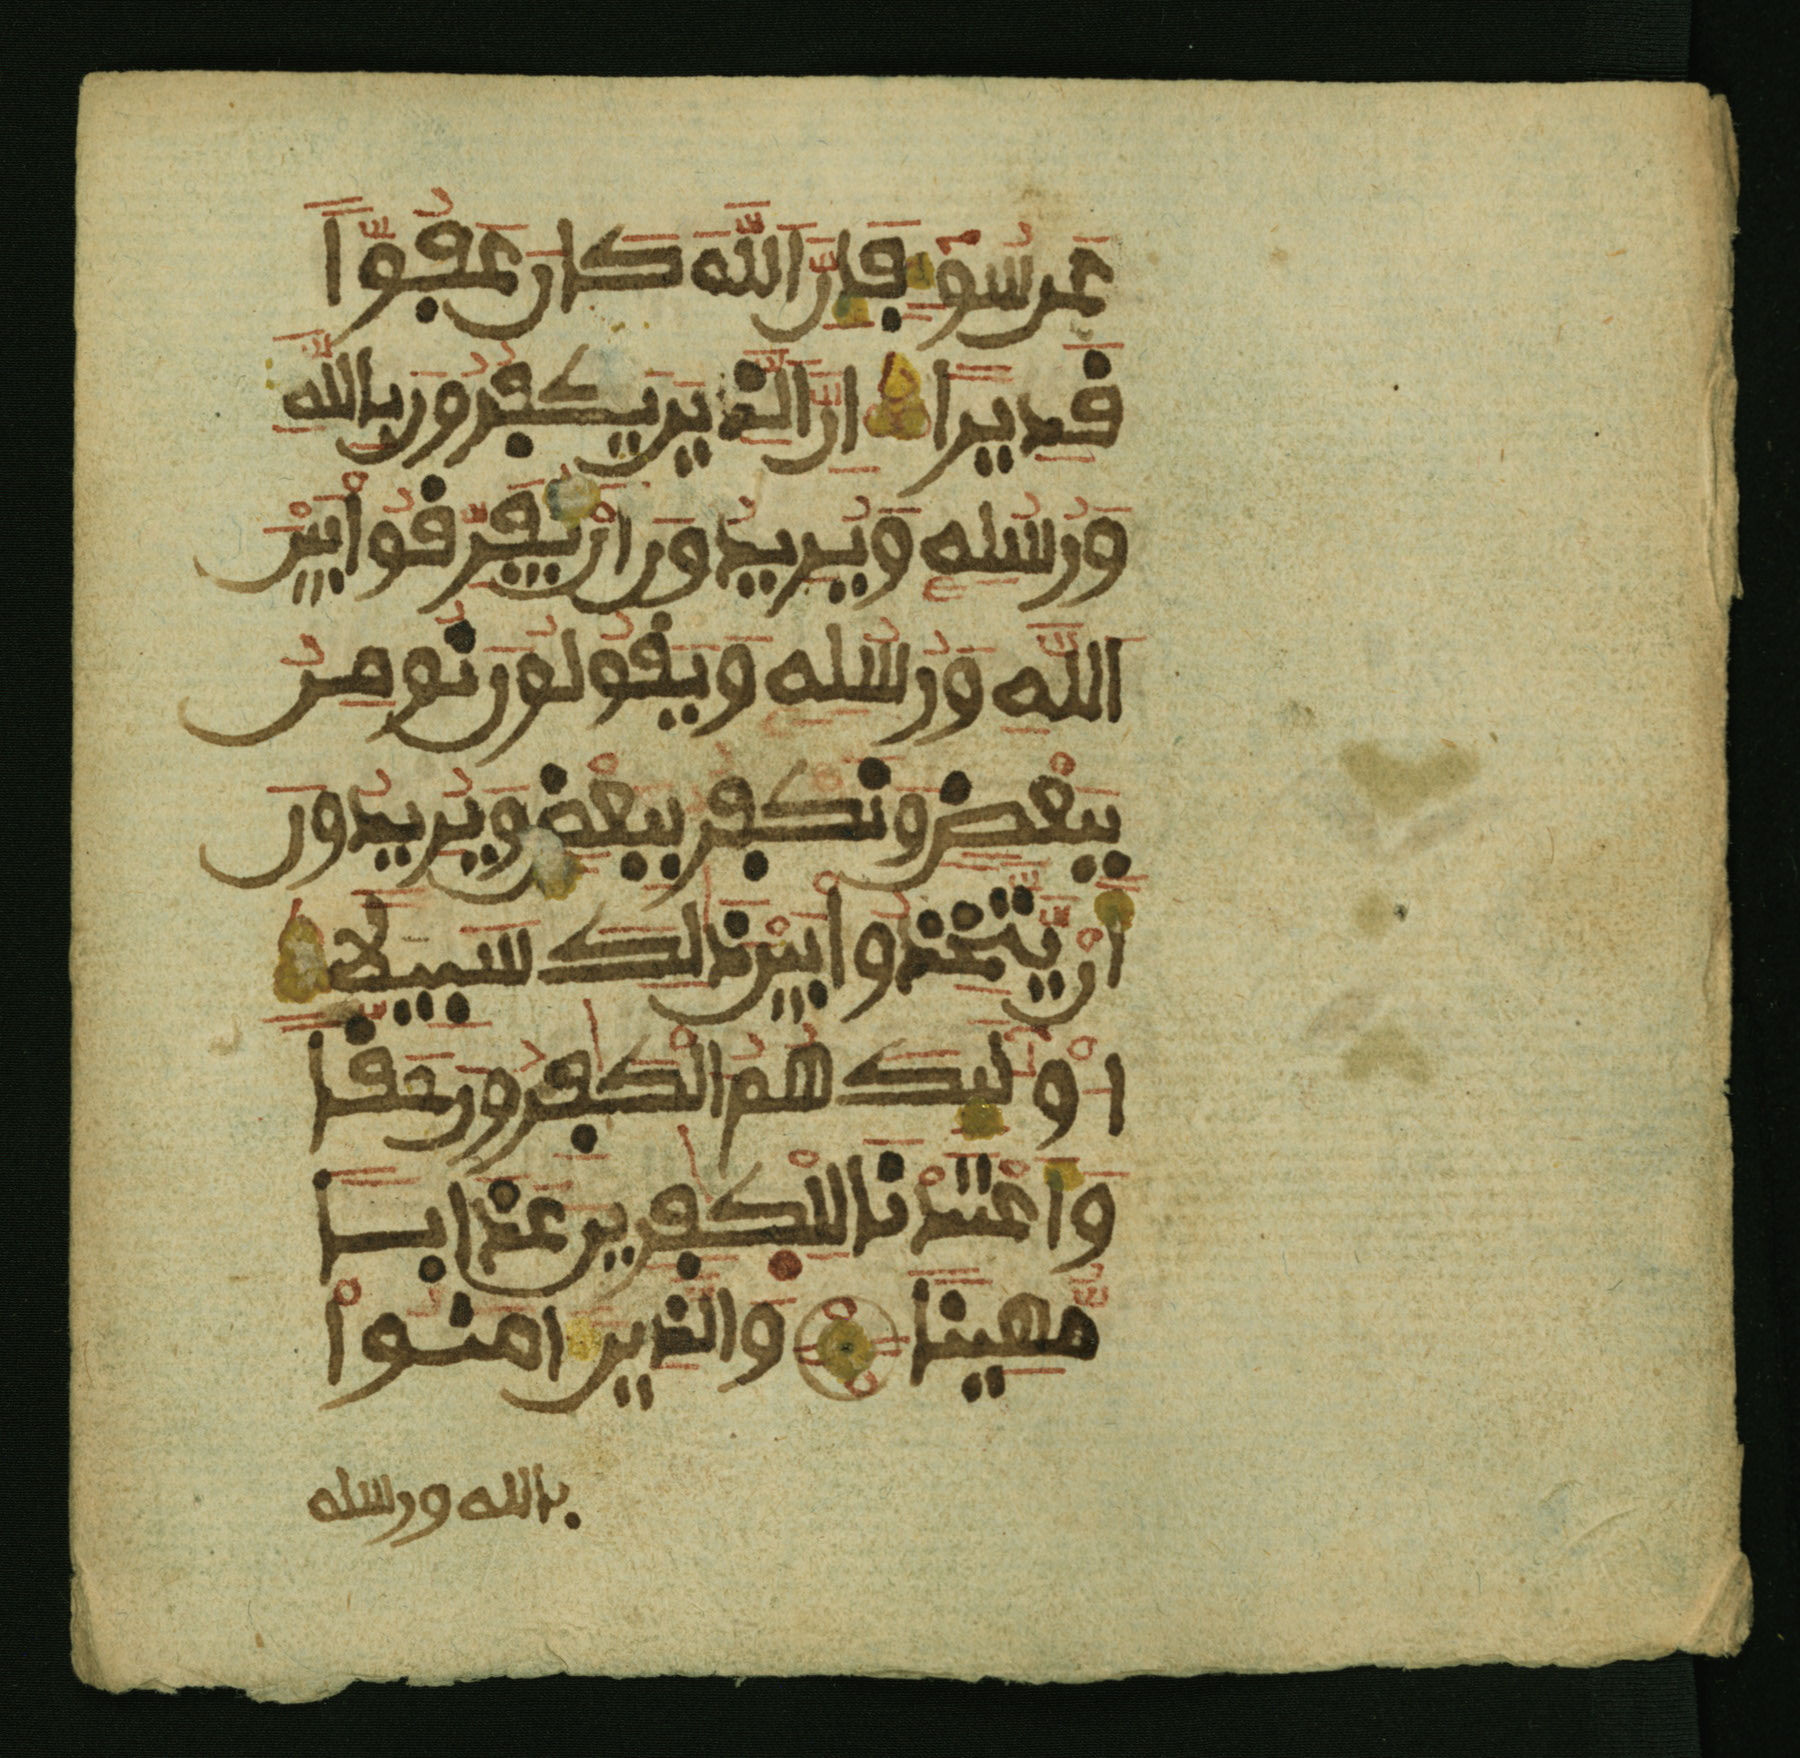 عَن سُوٓءٍ فَإِنَّ ٱللَّهَ كَانَ عَفُوّٗا
قَدِيرًا إِنَّ ٱلَّذِينَ يَكۡفُرُونَ بِٱللَّهِ
وَرُسُلِهِۦ وَيُرِيدُونَ أَنۡ يُّفَرِّقُواْ بَيۡنَ
ٱللَّهِ وَرُسُلِهِۦ وَيَقُولُونَ نُومِنُ
بِبَعۡضٖ وَنَكۡفُرُ بِبَعۡضٖ وَيُرِيدُونَ
أَنۡ يَّتَّخِذُواْ بَيۡنَ ذَٰلِكَ سَبِيلًا
أُوْلَٰٓئِكَ هُمُ ٱلۡكَٰفِرُونَ حَقّٗا
وَأَعۡتَدۡنَا لِلۡكَٰفِرِينَ عَذَابٗا
مُّهِينٗا وَٱلَّذِينَ ءَامَنُواْ
بالله ورسله